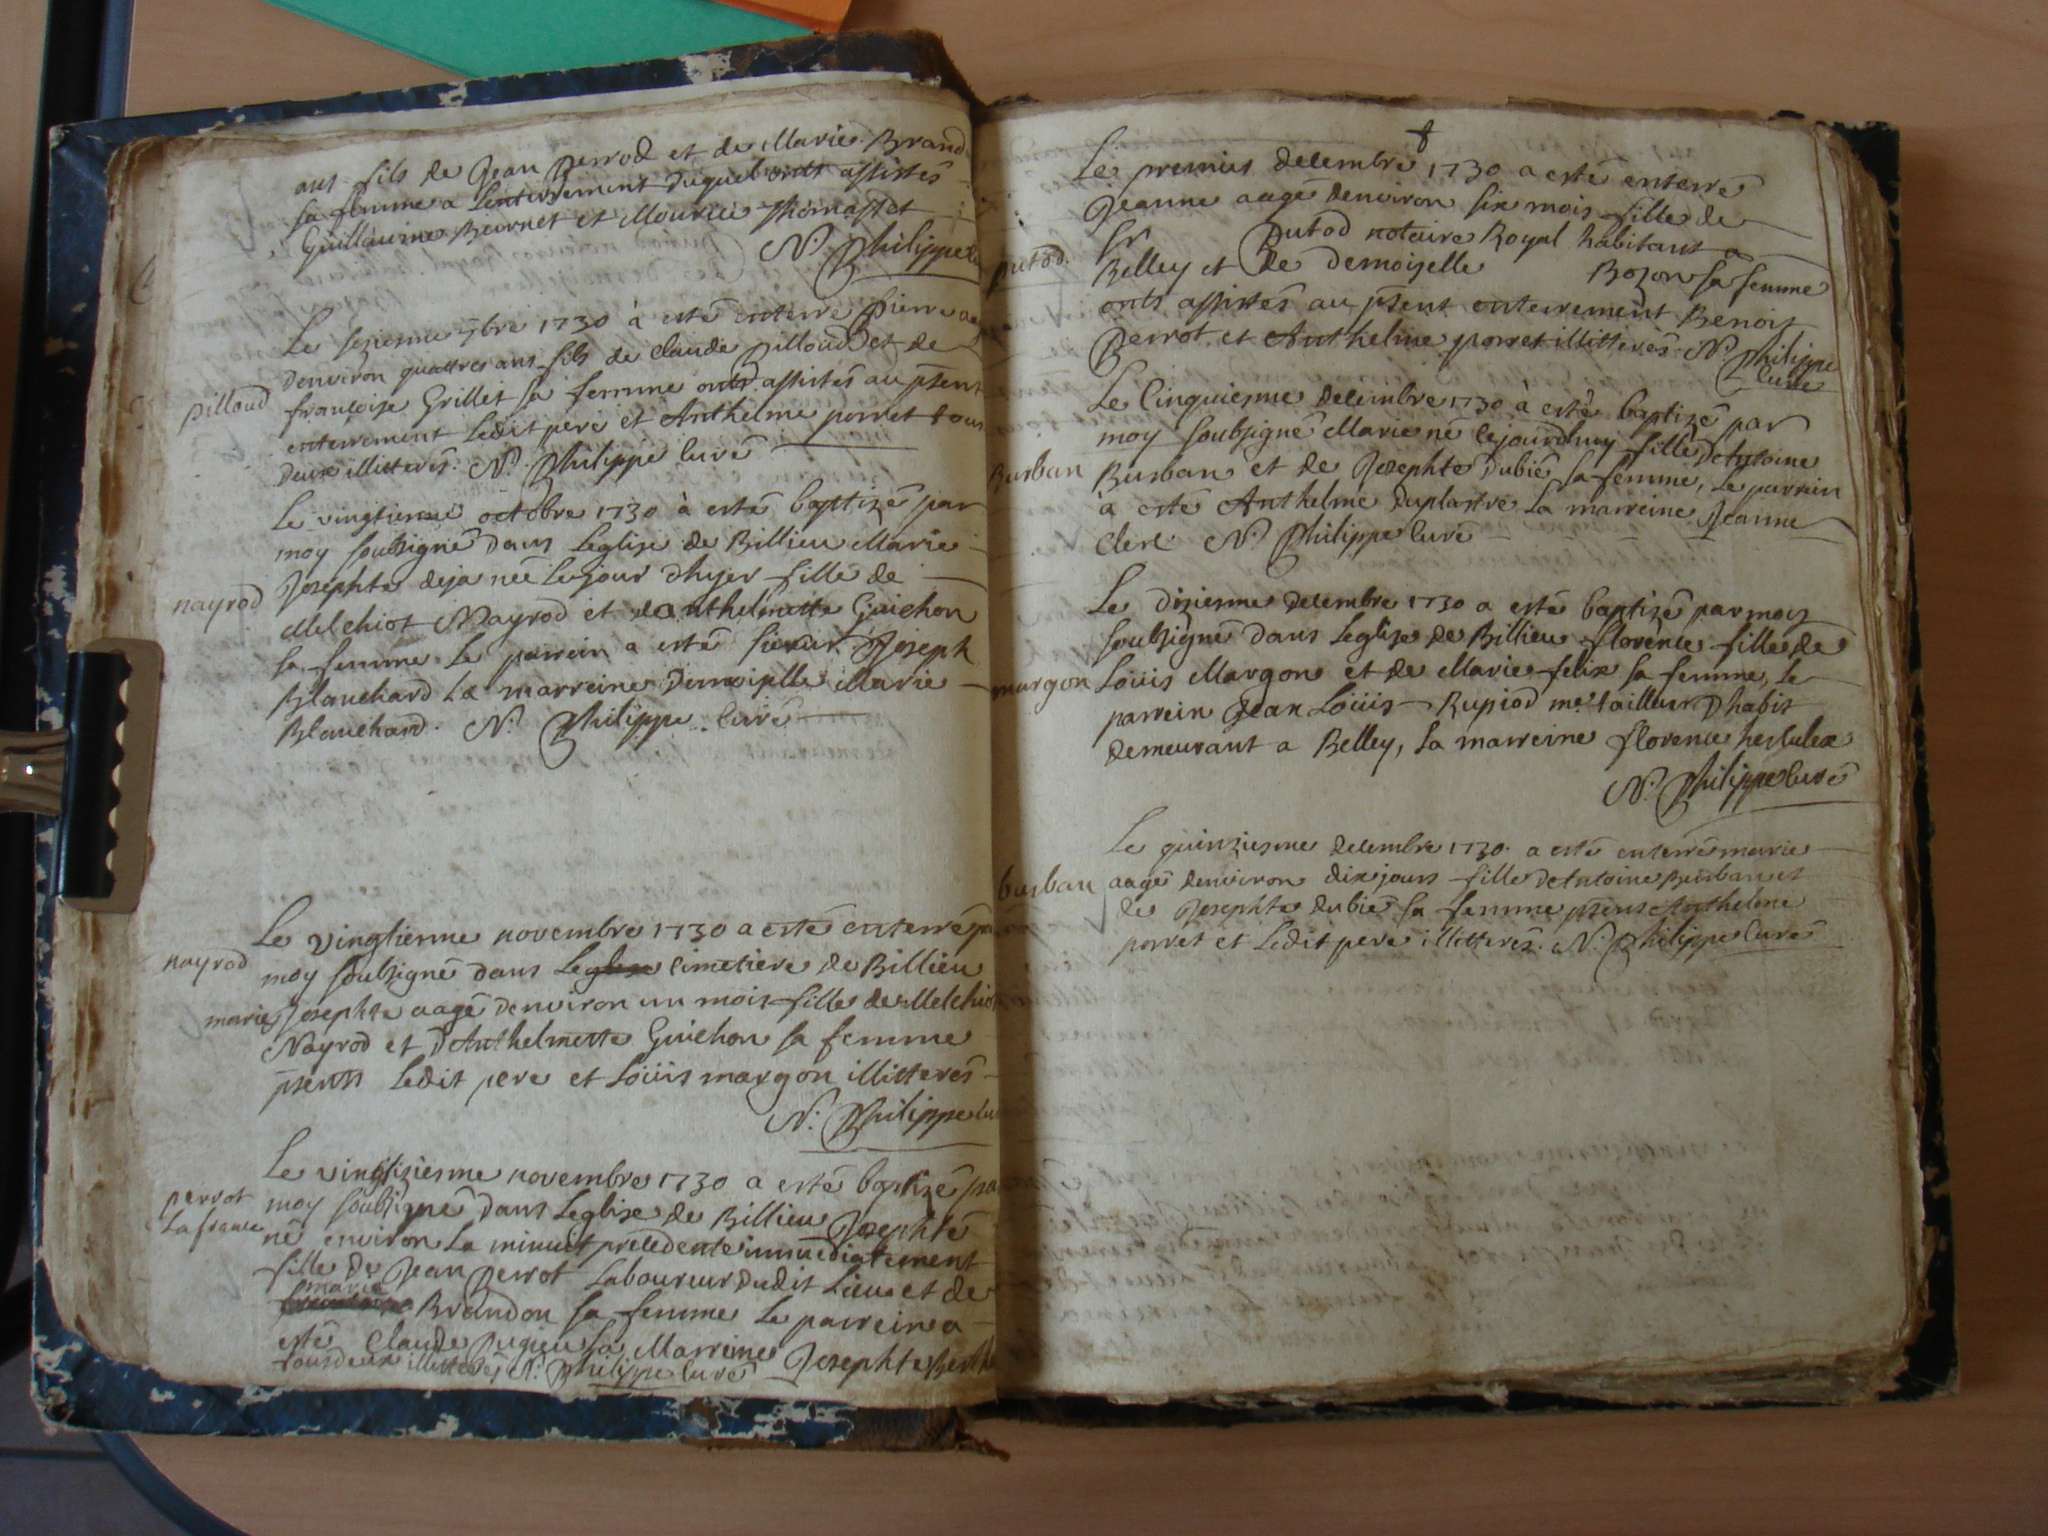 ans fils de Jean perrod et de Marie Brand
sa femme a Lenterrement duquel onts assistés
Guillaume Beornet et Mourice Thomasset
N. Philippe
Le sezieme 7bre 1730 à esté enterre pierre aagé
pilloud
denviron quattres ans fils de claude pilloud et de
françoise Grillet sa femme onts assistés au pñent
enterrement Ledit pere et Anthelme porret tous
deux illitterés. N. Philippe Curé
Le vingtieme octobre 1730 à esté baptizé par
moy soubsigné dans Leglise de Billieu Marie
Josephte deja neé Le jour dhyer fille de
nayrod
Melchiot Nayrod et de anthelmette Guichon
sa femme Le parrein a esté sieur Joseph
Blanchard La marreine Demoiselle Marie
Blanchard. N. Philippe Curé
Le vingtieme novembre 1730 a esté enterré par
nayrod
moy soubsigné dans Leglise Cimetiere de Billieu
marie Josephte aagé denviron un mois fille de Melchiot
Nayrod et D'Anthelmette Guichon sa femme
pñents Ledit pere et Loüis margon illitterés
N. Philippe Cu
Le vingtiziesme novembre 1730 a esté baptizé par
perrot
la france
moy soubsigné dans Leglise de Billieu Josephte
né environ La minuit precedente immediatement
fille de Jean perrot Laboureur dudit Lieu et de
marie
Brandon sa femme Le parrein a
esté Claude pugieu La Marreine Josephte Berth
tous deux illitterés N. Philippe Curé
Le premier decembre 1730 a esté enterré
Jeanne aagé denviron six mois fille de
putod.
Sr putod notaire Royal habitant a
Belley et de demoiselle Bozon sa femme
onts assistés au pñent enterrement Benoit
perrot et Anthelme porret illitterés N. Philippe
Curé
Le Cinquiesme decembre 1730 à esté baptizé par
moy soubsigné Marie né cejourdhuy fille D'Antoine
Burban
Burban et de Josephte dubié sa femme, Le parrein
à esté Anthelme duplastre La marreine Jeanne
Clerc N. Philippe Curé
Le diziesme decembre 1730 a esté baptizé par moy
soubsigné dans Leglise de Billieu florence fille de
margon
Loüis Margon et de Marie felix sa femme, Le
parrein Jean Loüis Rupiod me tailleur Dhabit
demeurant a Belley, La marreine florence herculex
N. Philippe Curé
Le quinziesme decembre 1730. a esté enterré marie
burban
aagé denviron dix jours fille D'Antoine Burban et
de Josephte dubié sa femme pñents Anthelme
porret et Ledit pere illitterés. N. Philippe Curé